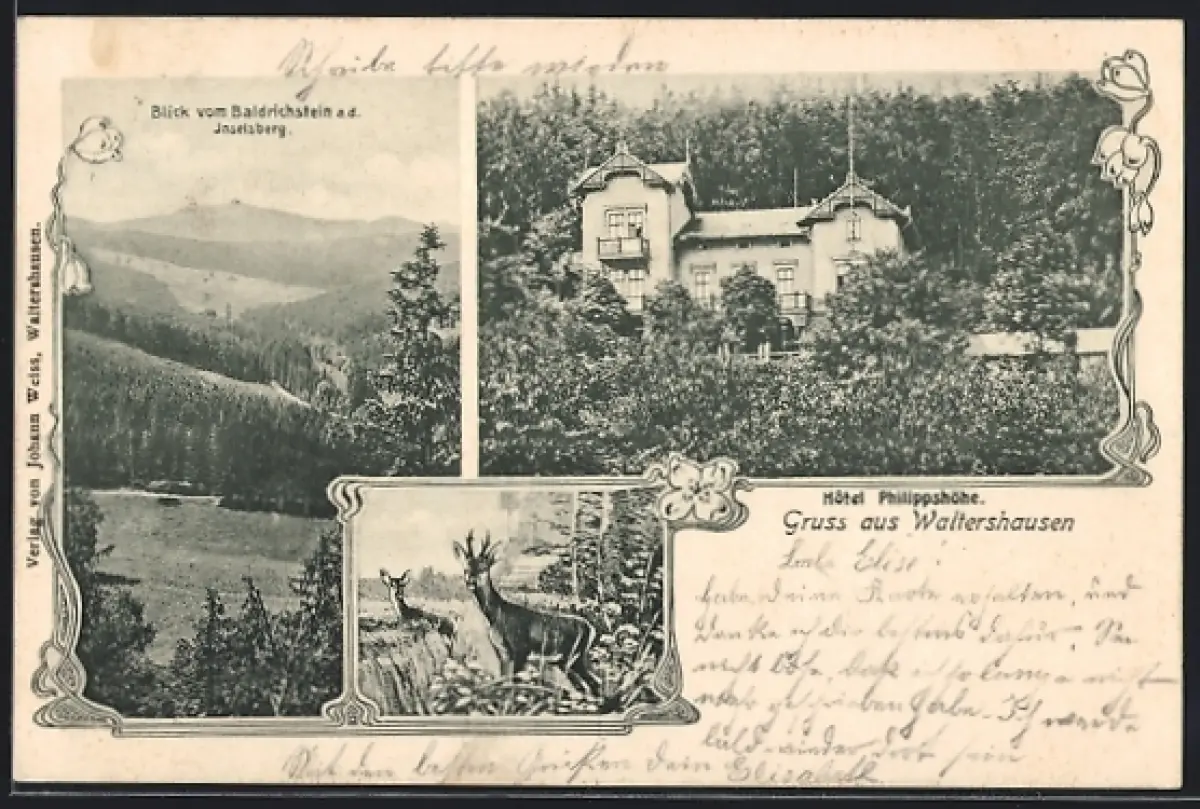 Schreibe bitte wieder
Blick vom Baldrichstein a.d.
Jnselsberg.
Verlag von Johann Weiss, Waltershausen.
Hôtel Philippshöhe.
Gruss aus Waltershausen
Liebe Elise!
Habe Deine Karte erhalten, und
danke ich dir bestens dafür. Sei
nicht böse, daß ich so lange nicht
mehr geschrieben habe. Ich werde
bald wieder dort sein
Mit den besten Grüßen Dein Elisabeth